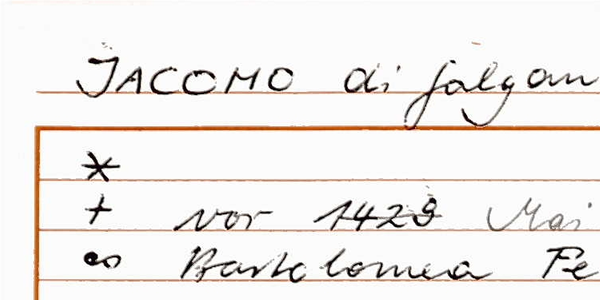 JACOMO di falgan
*
+ vor 1429 Mai
∞ Bartolomea Fe